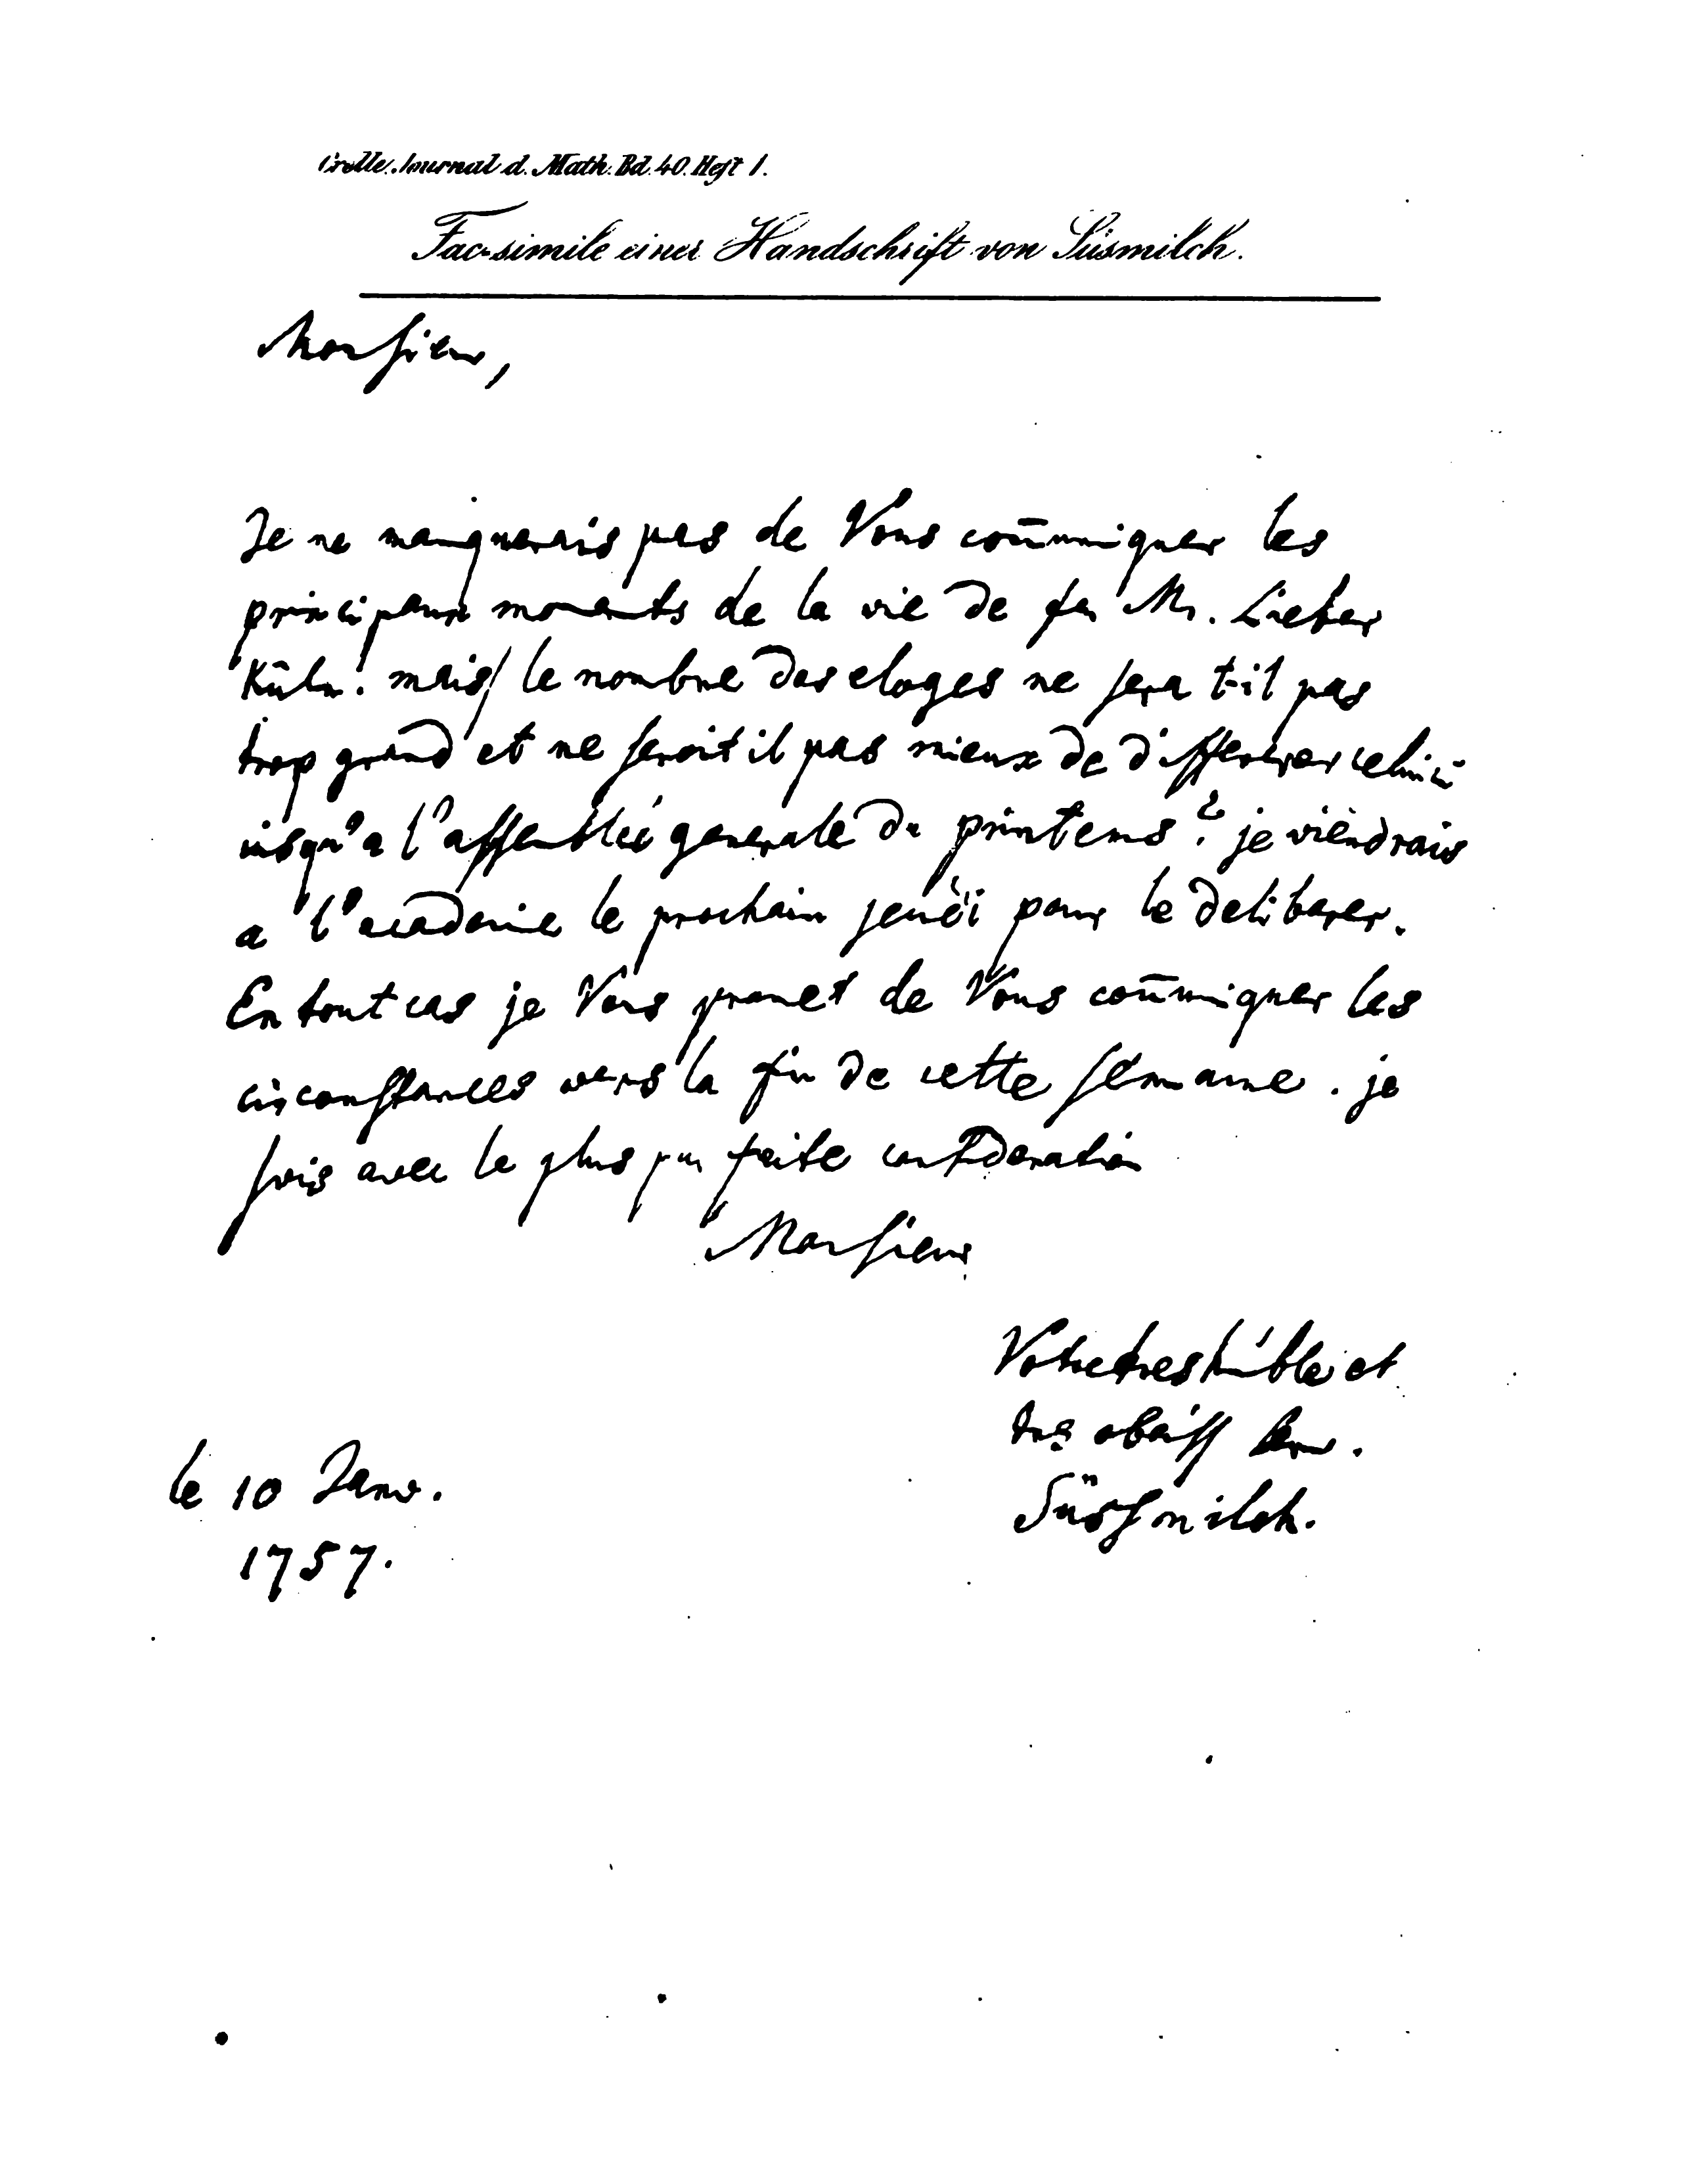 Crelle Journal d. Math. Bd. 40. Heft 1.
Fac-simile einer Handschrift von Süsmilch.
Monsieur,
Je ne manquerais pas de Vous com̄uniquer les
principaux moments de la vie de feu Mr. Lieber
Kühn. mais le nombre des eloges ne sera t-il pas
trop grand et ne seroit il pas mieux de differer celui ci
jusqu'a l'assemblée generale du printems? je viendrais
a l'academie le prochain jeudi pour le deliberer.
En tout cas je Vous promet de Vous com̄uniquer les
circonstances vers la fin de cette semaine. je
suis avec le plus parfaite consideration
Monsieur
Votre tres humble et
tres obeiss serv.
Süssmilch.
le 10 Janv.
1757.